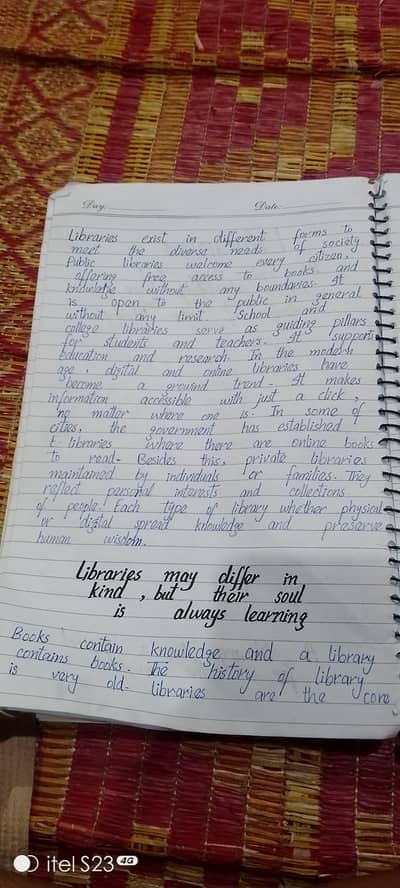 Day: Date:
Libraries exist in different forms to
meet the diverse needs of society
Public libraries welcome every citizen,
offering free access to books and
knowledge without any boundaries. It
is open to the public in general
without any limit. School and
college libraries serve as guiding pillars
for students and teachers. It supports
Education and research. In the modern
age, digital and online libraries have
become a growind trend. It makes
information accessible with just a click,
no matter where one is. In some of
cities, the government has established
E-libraries where there are online books
to read. Besides this, private libraries
maintained by individuals or families. They
reflect personal interests and collections
of people. Each type of library whether physical
or digital spread knowledge and preserve
human wisdom.
Libraries may differ in
kind, but their soul
is always learning
Books contain knowledge and a library
contains books. The history of library
is very old. libraries are the core
itel S23 4G